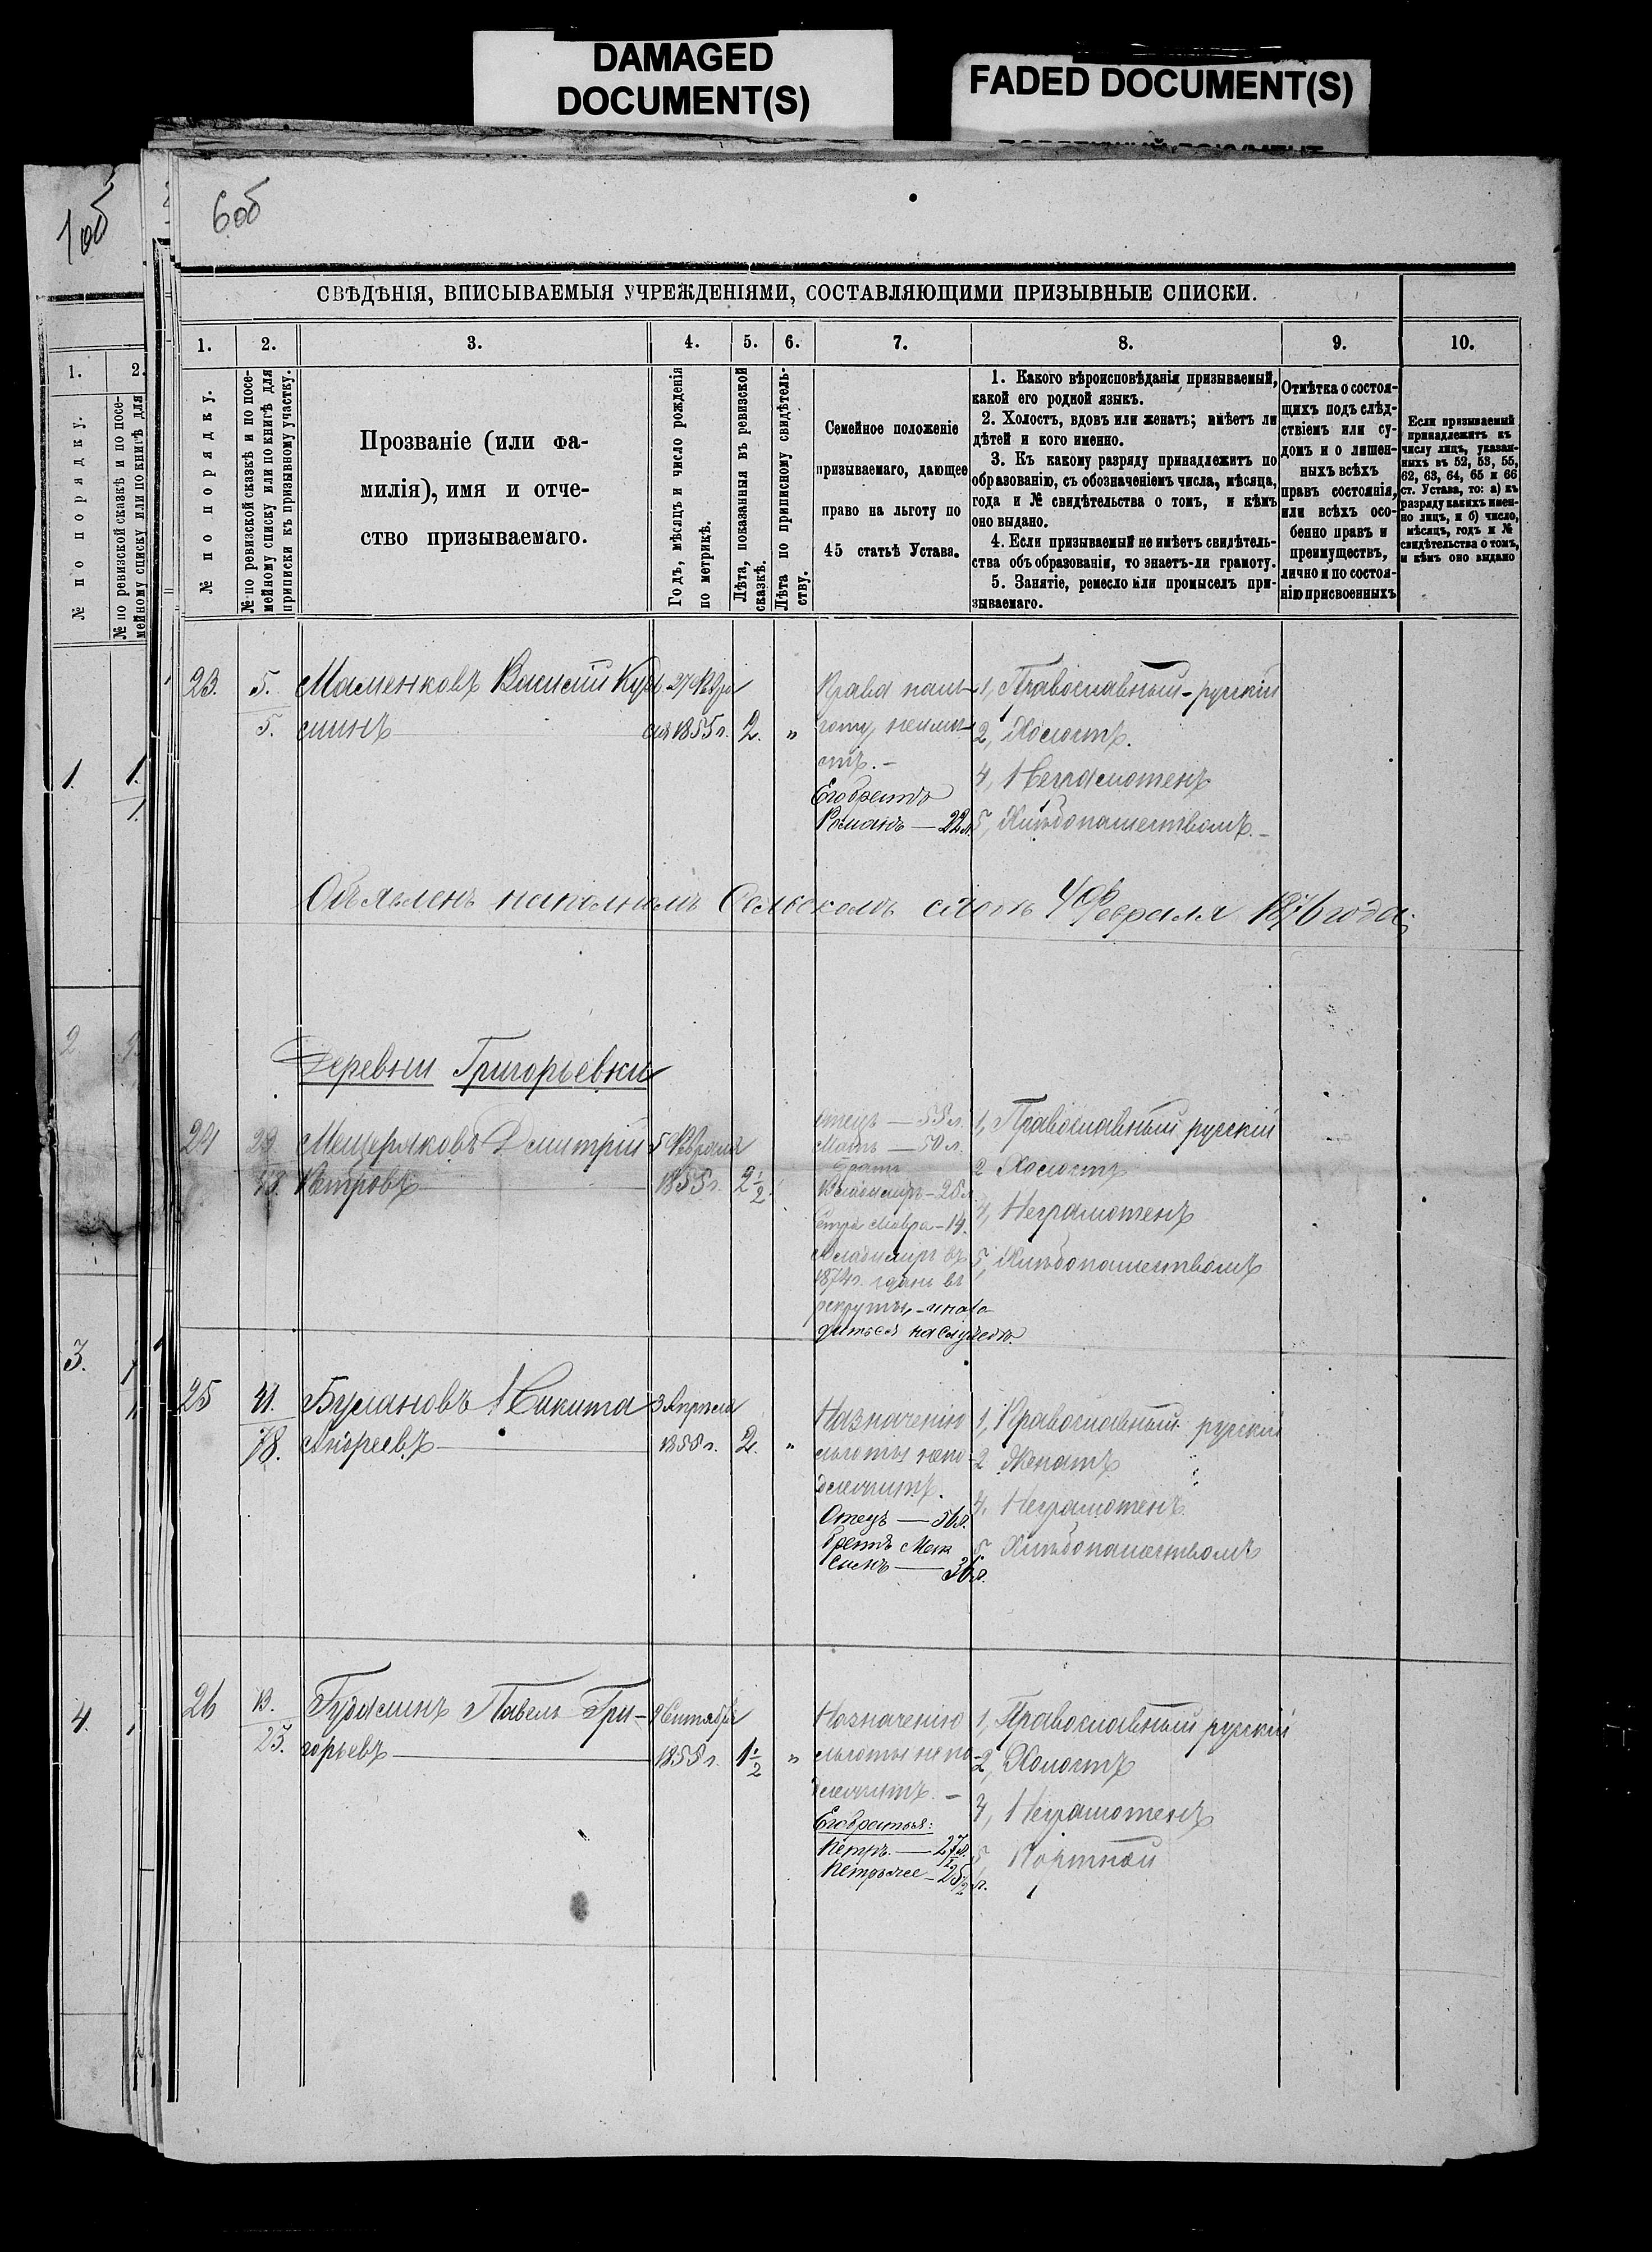 DAMAGED
DOCUMENT(S)
FADED DOCUMENT(S)
1об
6об
СВѢДѢНІЯ, ВПИСЫВАЕМЫЯ УЧРЕЖДЕНІЯМИ, СОСТАВЛЯЮЩИМИ ПРИЗЫВНЫЕ СПИСКИ.
1. 2. 3. 4. 5. 6. 7. 8. 9. 10.
№ по порядку.
№ по ревизской сказкѣ и по посе-
мейному списку или по книгѣ для
приписки къ призывному участку.
Прозваніе (или фа-
милія), имя и отче-
ство призываемаго.
Годъ, мѣсяцъ и число рожденія
по метрикѣ.
Лѣта, показанныя въ ревизской
сказкѣ.
Лѣта по приписному свидѣтель-
ству.
Семейное положеніе
призываемаго, дающее
право на льготу по
45 статьѣ Устава.
1. Какого вѣроисповѣданія призываемый,
какой его родной языкъ.
2. Холостъ, вдовъ или женатъ; имѣетъ ли
дѣтей и кого именно.
3. Къ какому разряду принадлежитъ по
образованію, съ обозначеніемъ числа, мѣсяца,
года и № свидѣтельства о томъ, и кѣмъ
оно выдано.
4. Если призываемый не имѣетъ свидѣтель-
ства объ образованіи, то знаетъ-ли грамоту.
5. Занятіе, ремесло или промыселъ при-
зываемаго.
Отмѣтка о состоя-
щихъ подъ слѣд-
ствіемъ или су-
домъ и о лишен-
ныхъ всѣхъ
правъ состоянія,
или всѣхъ осо-
бенно правъ и
преимуществъ,
лично и по состоя-
нію присвоенныхъ
Если призываемый
принадлежитъ къ
числу лицъ, указан-
ныхъ въ 52, 53, 55,
62, 63, 64, 65 и 66
ст. Устава, то: а) къ
разряду какихъ имен-
но лицъ, и б) число,
мѣсяцъ, годъ и №
свидѣтельства о томъ,
и кѣмъ оно выдано
23. 5. Василій
5. 1855 г. 2. "
Права на ль-
готу неимѣ-
етъ. -
Его братъ
Романъ — 22 л.
1, Православный - русскій
2, Холостъ.
4, Неграмотенъ
5, Хлѣбопашествомъ. -
4 Февраля 1876 года.
Деревни Григорьевки
24 Мещеряковъ Дмитрій 5 Февраля
Петровъ 1855 г. 2 1/2
Отецъ — 55 л.
Мать — 50 л.
Братъ
Владимиръ - 25 л.
Сестра Мавра - 14.
Владимиръ въ
1874 г. сданъ въ
рекруты, и нахо-
дится на службѣ.
1, Православный русскій
2 Холостъ
4, Неграмотенъ
5, Хлѣбопашествомъ
25 41. Никита 3 Апрѣля
78. Андреевъ 1855 г. 2. "
Назначенію
льготы непо-
длежитъ.
Отецъ — 56 л.
Братъ Мак
симъ — 36 л.
1, Православный русскій
2 Женатъ
4. Неграмотенъ.
5. Хлѣбопашествомъ
26 13. Павелъ Гри-
25. горьевъ 1855 г. 1 1/2 "
Назначенію
льготы непо-
длежитъ. -
Его братья:
Петръ. — 27 л.
1, Православный русскій
2, Холостъ
4, Неграмотенъ
5, Портной